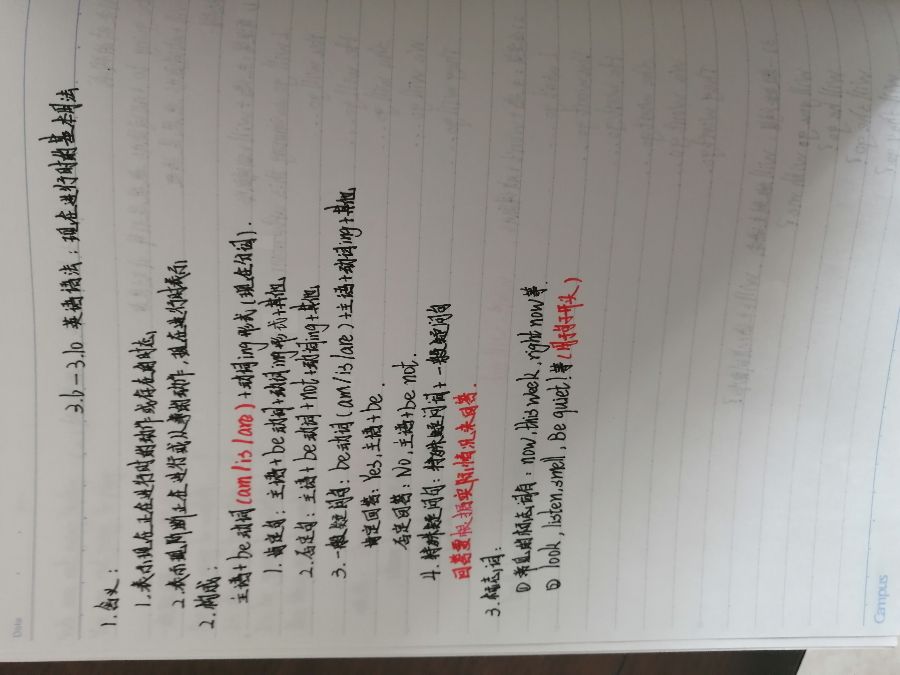 3.6-3.10 英语语法：现在进行时的基本用法.
1.含义：
1.表示现在正在进行时的动作或存在的状态
2.表示现阶段正在进行或从事的动作，现在进行时表示
2.构成：
主语+be动词(am/is/are)+动词ing形式(现在分词).
1.肯定句：主语+be动词+动词ing形式+其他
2.否定句：主语+be动词+not+动词ing+其他
3.一般疑问句：be动词(am/is/are)+主语+动词ing+其他
肯定回答：Yes,主语+be.
否定回答：No,主语+be not.
4.特殊疑问句：特殊疑问词+一般疑问句
回答要根据实际情况来回答
3.标志词：
①常见的标志词有：now,this week,right now等.
②look,listen,smell,Be quiet!等(用于句子开头)
Date
Campus